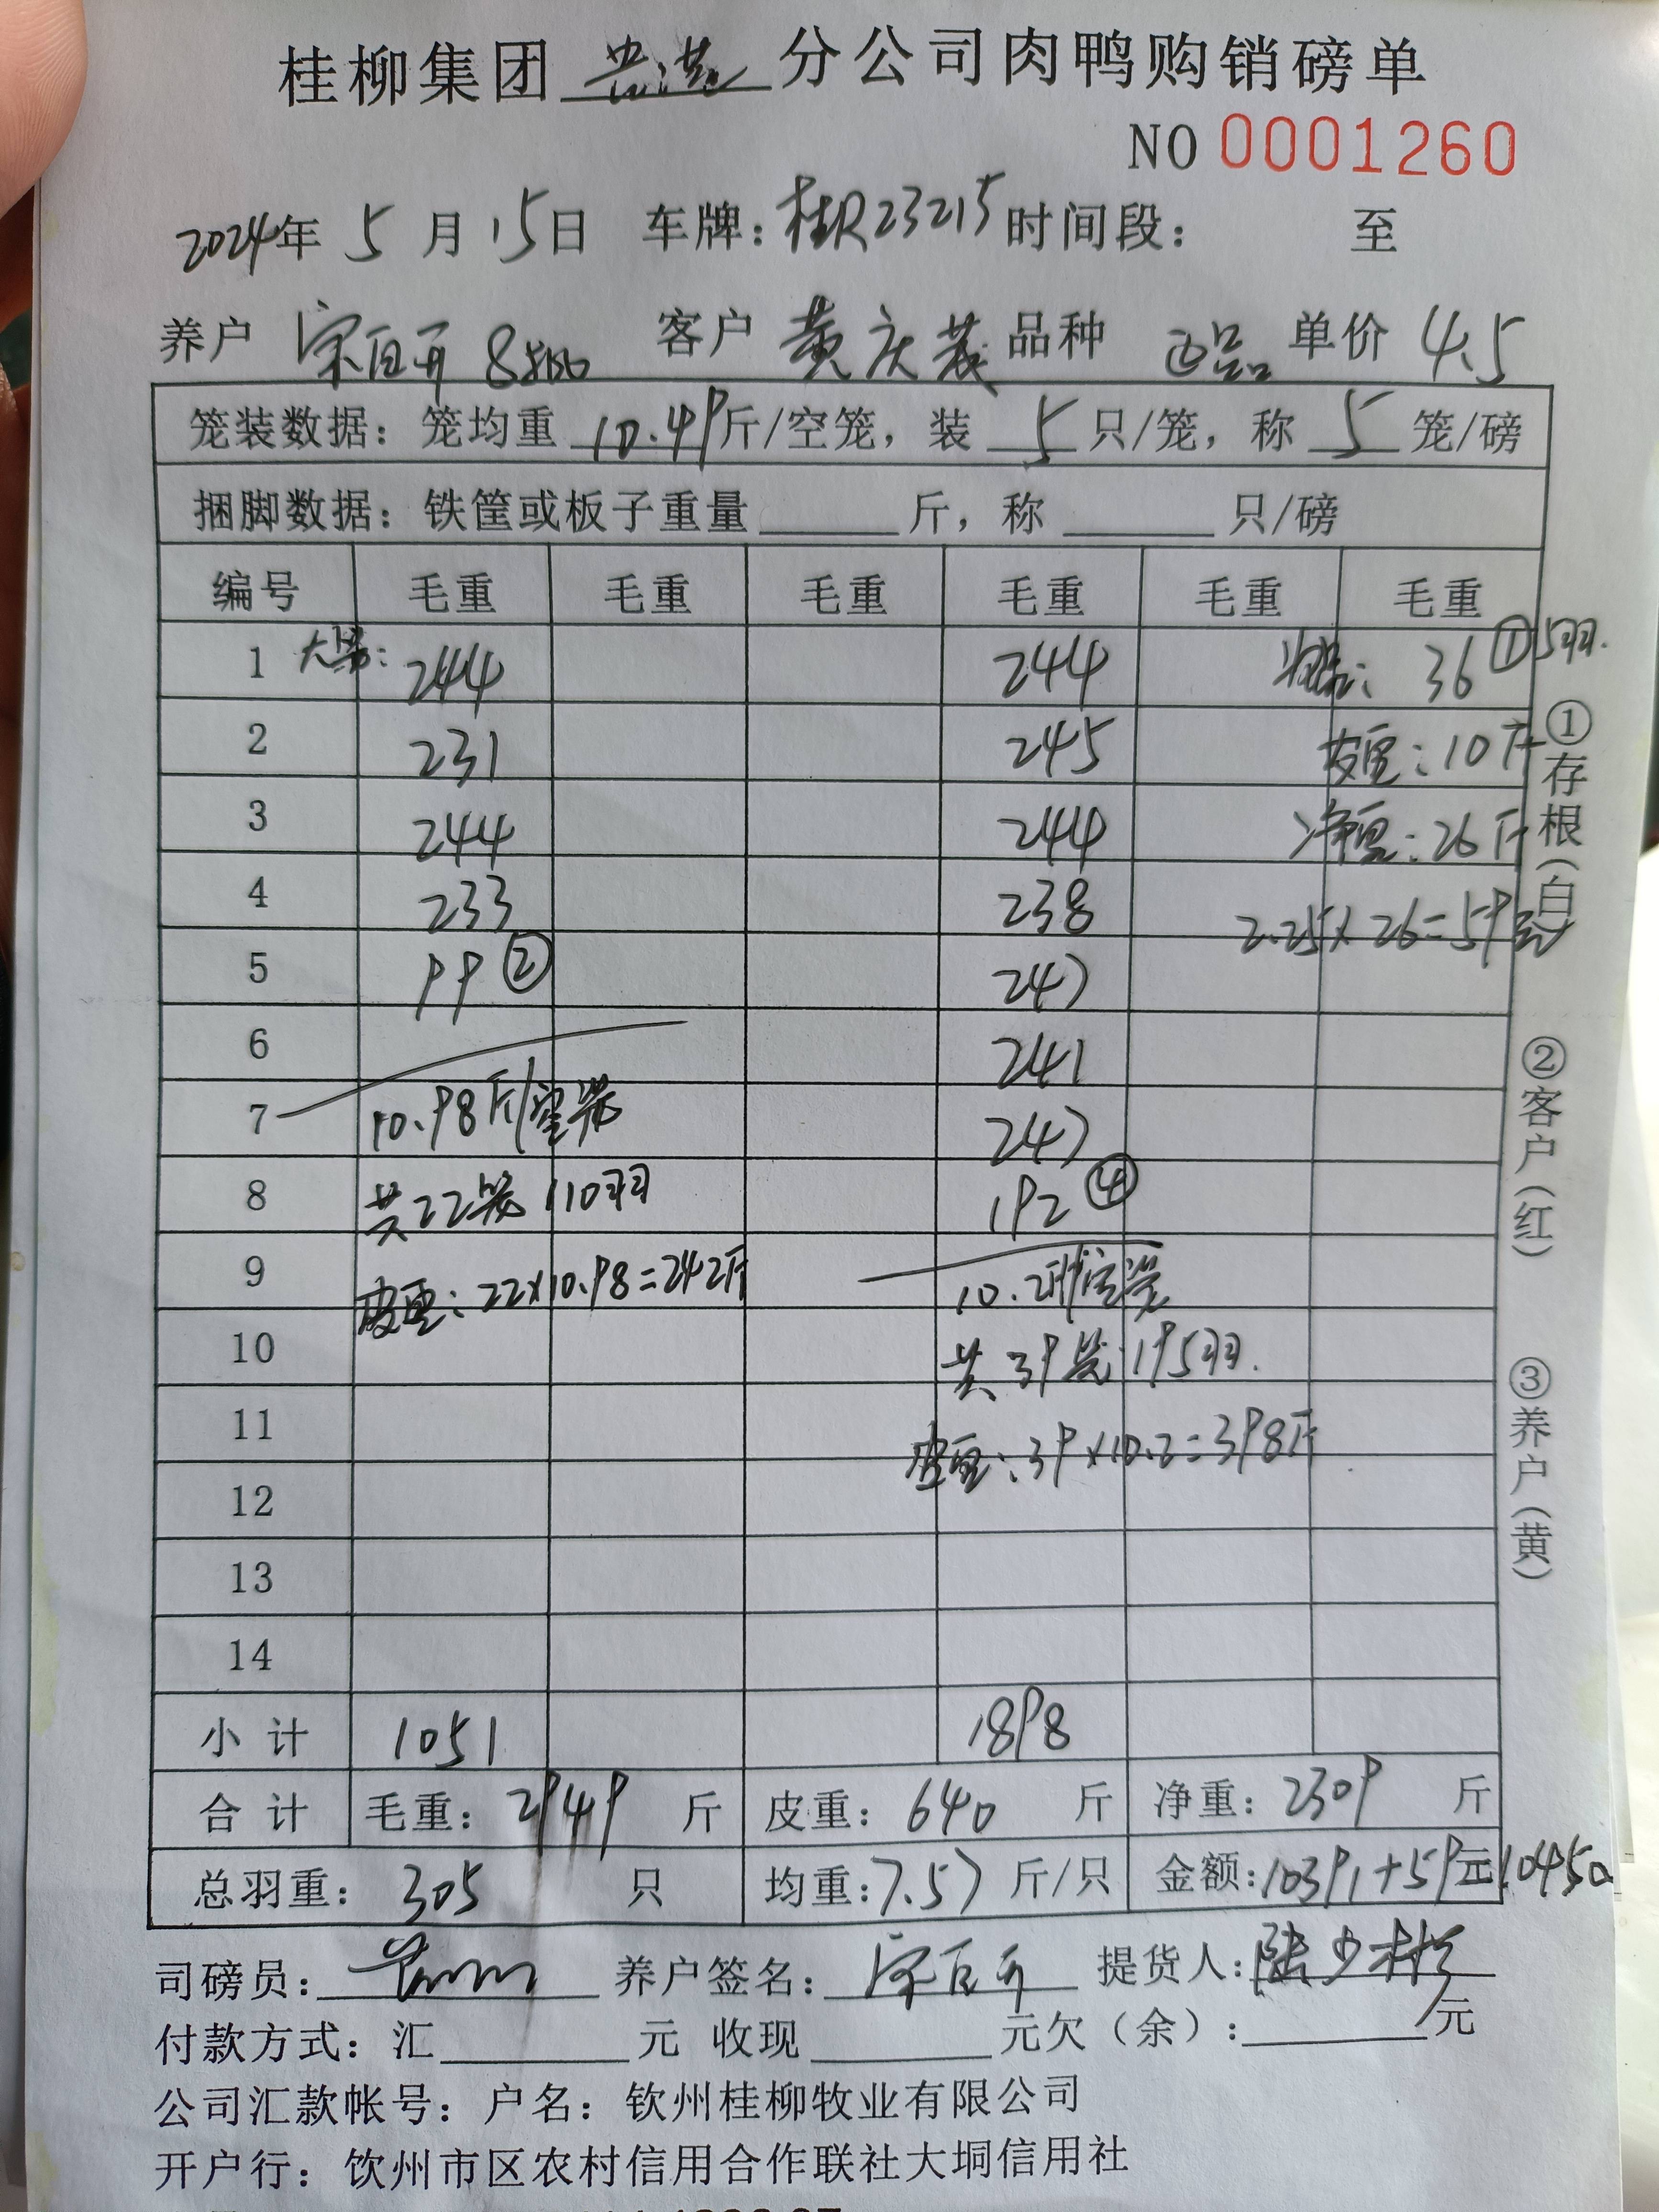 桂柳集团 贵港 分公司肉鸭购销磅单
NO 0001260
2024年 5 月 15日 车牌：桂R23215 时间段： 至
养户 宋百开 8批 客户 黄庆茂 品种 正品 单价 4.5
笼装数据：笼均重 10.49 斤/空笼，装 5 只/笼，称 5 笼/磅
捆脚数据：铁筐或板子重量 斤，称 只/磅
编号 毛重 毛重 毛重 毛重 毛重 毛重
1 大笼： 244 244 36 ① 5羽.
2 231 245 皮重：10斤
3 244 244 净重：26斤
4 233 238 2.25×26=59元
5 99 ② 247
6 241
7 10.98斤/空笼 247
8 共22笼 110羽 192 ④
9 皮重：22×10.98=242斤 10.2斤/空笼
10 共39笼 195羽.
11 皮重：39×10.2=398斤
12
13
14
小 计 1051 1898
合 计 毛重：2949 斤 皮重：640 斤 净重：2309 斤
总羽重：305 只 均重：7.57 斤/只 金额：10391+59元 10450
①存根（白） ②客户（红） ③养户（黄）
司磅员： 养户签名：宋百开 提货人：陆少彬
付款方式：汇 元 收现 元欠（余）： 元
公司汇款帐号：户名：钦州桂柳牧业有限公司
开户行：饮州市区农村信用合作联社大垌信用社